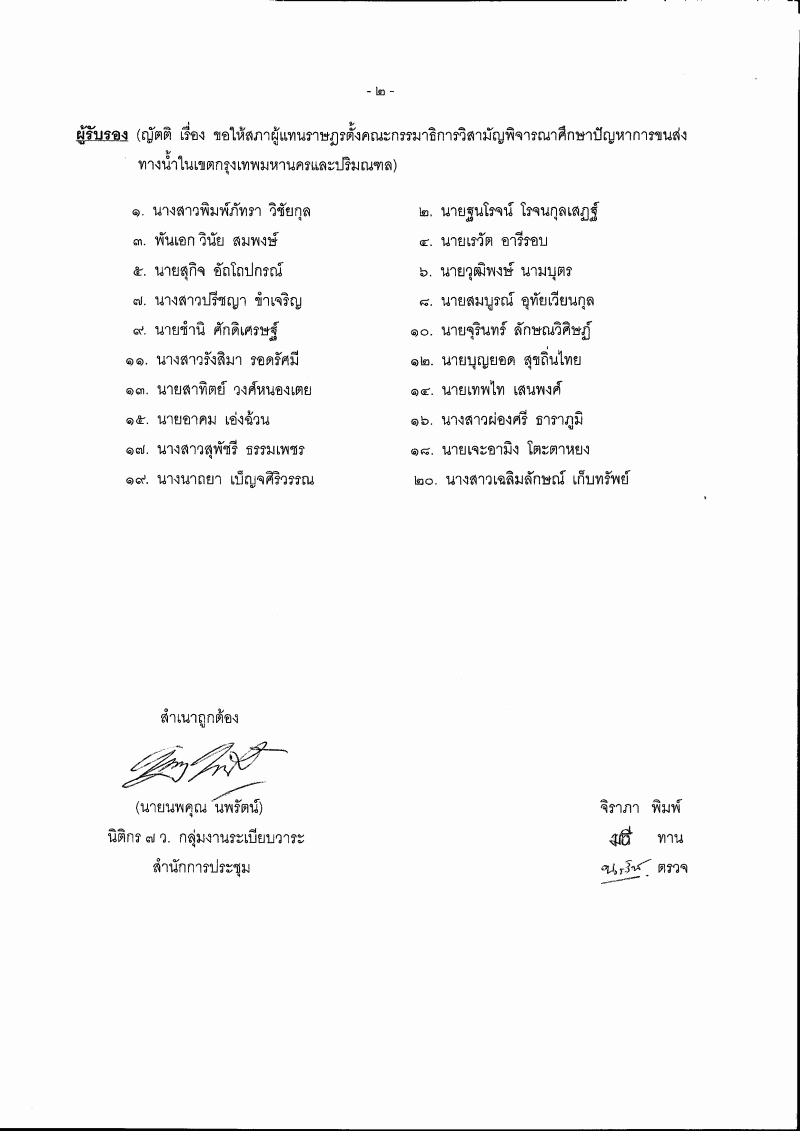 - ๒ -
ผู้รับรอง (ญัตติ เรื่อง ขอให้สภาผู้แทนราษฎรตั้งคณะกรรมาธิการวิสามัญพิจารณาศึกษาปัญหาการขนส่ง
ทางน้ำในเขตกรุงเทพมหานครและปริมณฑล)
๑. นางสาวพิมพ์ภัทรา วิชัยกุล ๒. นายฐนโรจน์ โรจนกุลเสฏฐ์
๓. พันเอก วินัย สมพงษ์ ๔. นายเรวัต อารีรอบ
๕. นายสุกิจ อัถโถปกรณ์ ๖. นายวุฒิพงษ์ นามบุตร
๗. นางสาวปรีชญา ขำเจริญ ๘. นายสมบูรณ์ อุทัยเวียนกุล
๙. นายชำนิ ศักดิเศรษฐ์ ๑๐. นายจุรินทร์ ลักษณวิศิษฏ์
๑๑. นางสาวรังสิมา รอดรัศมี ๑๒. นายบุญยอด สุขถิ่นไทย
๑๓. นายสาทิตย์ วงศ์หนองเตย ๑๔. นายเทพไท เสนพงศ์
๑๕. นายอาคม เอ่งฉ้วน ๑๖. นางสาวผ่องศรี ธาราภูมิ
๑๗. นางสาวสุพัชรี ธรรมเพชร ๑๘. นายเจะอามิง โตะตาหยง
๑๙. นางนาถยา เบ็ญจศิริวรรณ ๒๐. นางสาวเฉลิมลักษณ์ เก็บทรัพย์
สำเนาถูกต้อง
(นายนพคุณ นพรัตน์)
นิติกร ๗ ว. กลุ่มงานระเบียบวาระ
สำนักการประชุม
จิราภา พิมพ์
ทาน
ตรวจ